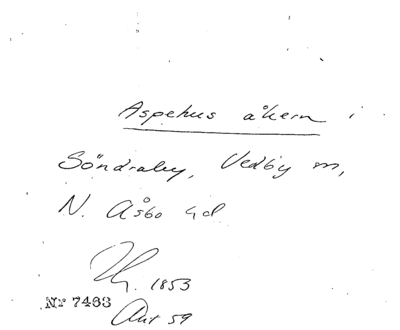 Aspehus åkern i
Söndraby, Vedby sn,
N. Åsbo hd
1853
Nr 7463
Akt 59